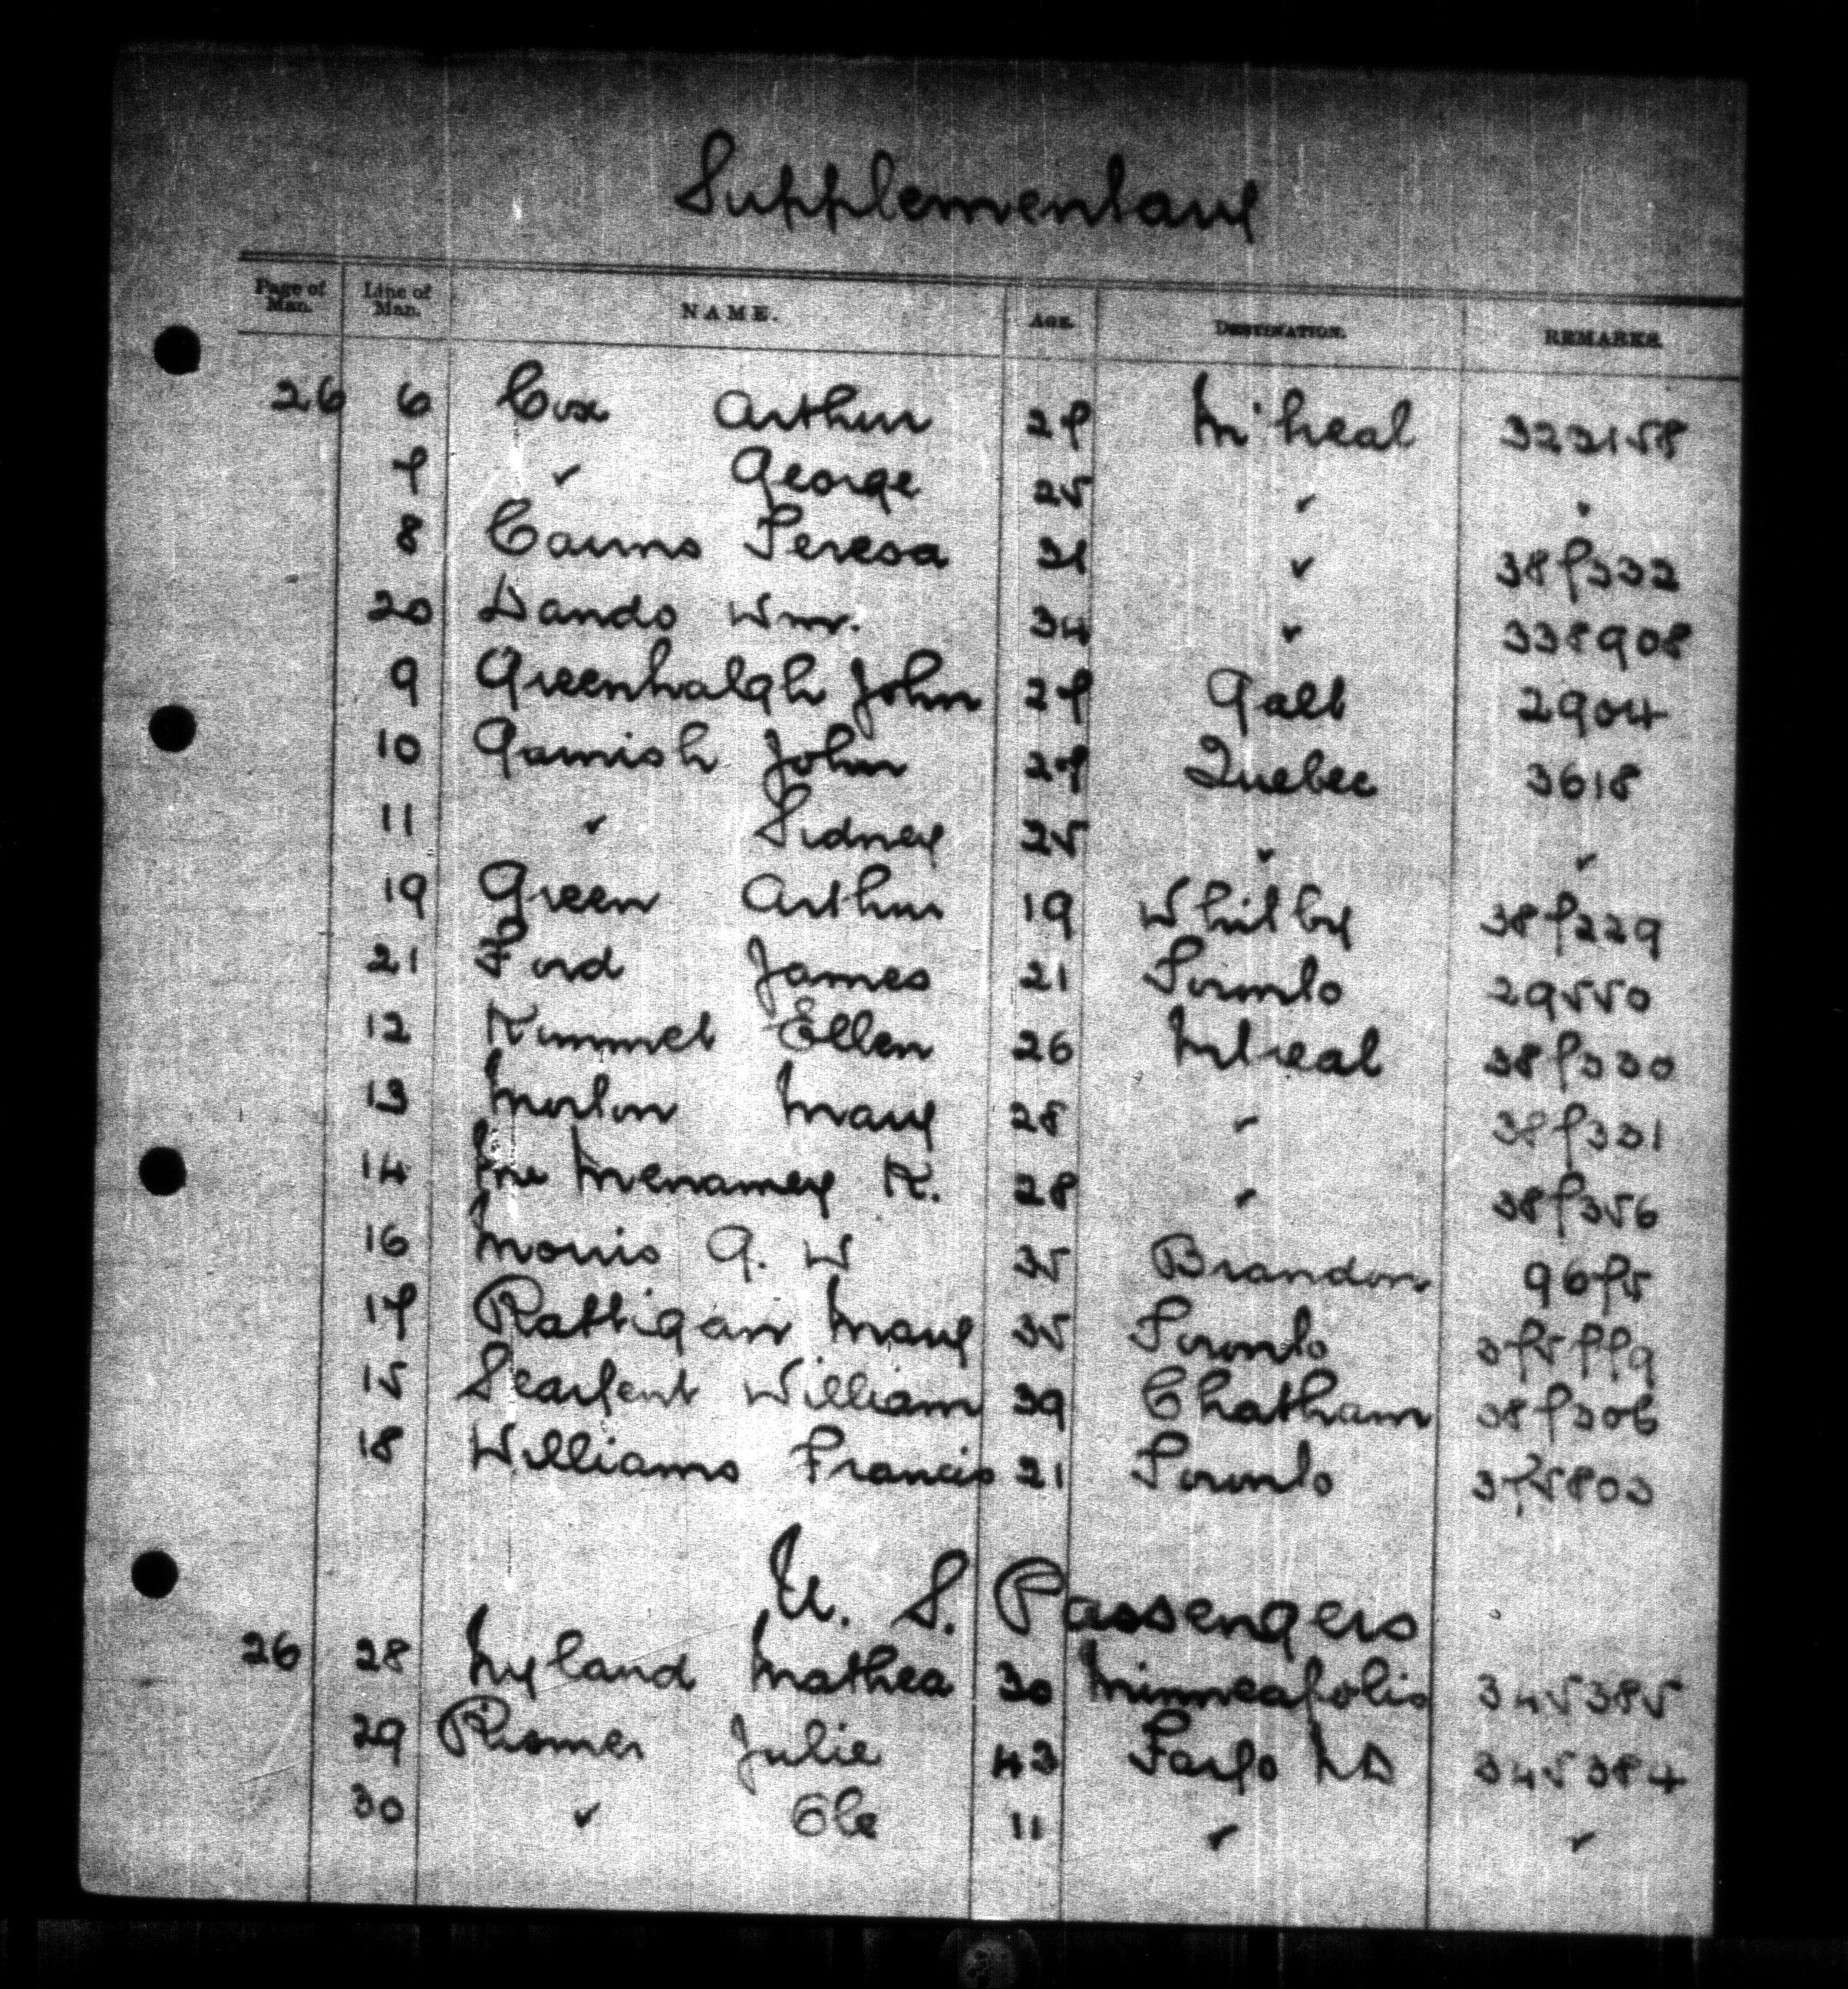 Supplementary
Page of Man. Line of Man. NAME. AGE. DESTINATION. REMARKS.
26 6 Cox Arthur 27 M'treal 322158
7 " George 25 " "
8 Cairns Teresa 31 " 387332
20 Dando Wm. 34 " 338908
9 Greenhalgh John 27 Galt 2904
10 Gamish John 27 Quebec 3618
11 " Sidney 25 " "
19 Green Arthur 19 Whitby 387229
21 Ford James 21 Toronto 29550
12 Kimmet Ellen 26 Mtreal 387330
13 Morton Mary 28 " 387331
14 Mc Menamey K. 28 " 387356
16 Morris G. W 35 Brandon 9675
17 Rattigan Mary 35 Toronto 375779
15 William 39 Chatham 387306
18 Williams Francis 21 Toronto 375803
U. S. Passengers
26 28 Myland Mathea 30 Minneapolis 345385
29 Rismer Julie 43 Fargo ND 345384
30 " Ole 11 " "